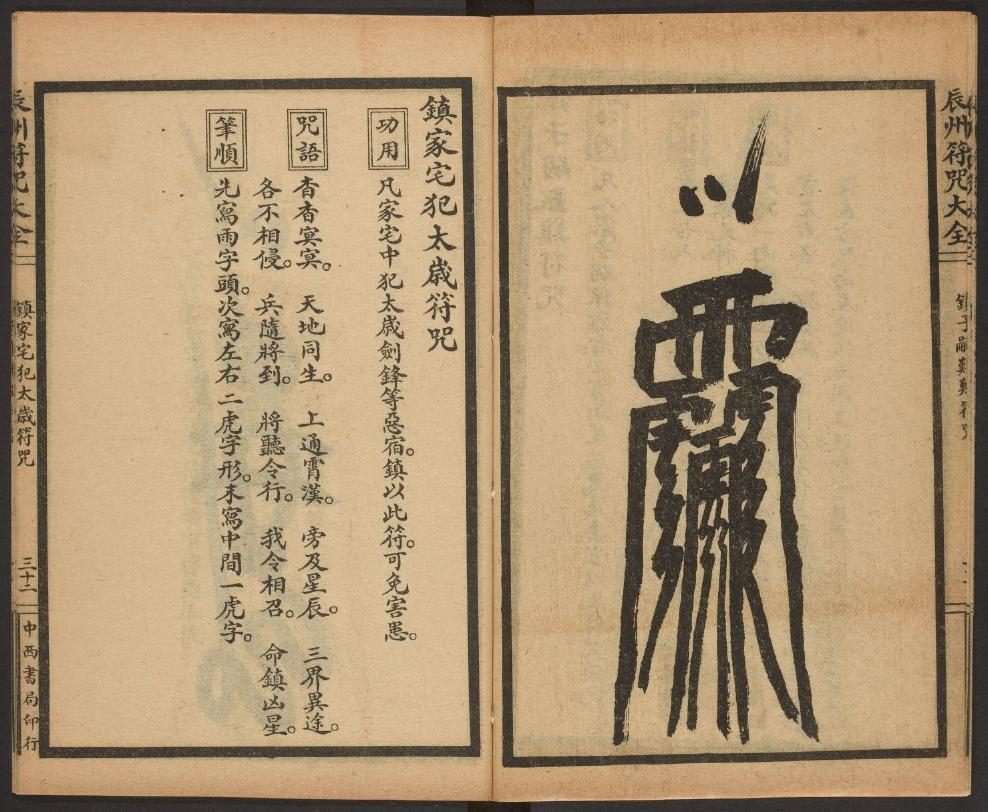 辰州符咒大全
鎮家宅犯太歲符咒
功用
凡家宅中犯太歲劍鋒等惡宿。鎮以此符。可免害愚。
咒語
杳杳冥冥。 天地同生。 上通霄漢。 旁及星辰。 三界異途。
各不相侵。 兵隨將到。 將聽令行。 我令相召。 命鎮凶星。
筆順
先寫雨字頭。次寫左右二虎字形。末寫中間一虎字。
辰州符咒大全
鎮家宅犯太歲符咒
三十二
中西書局印行